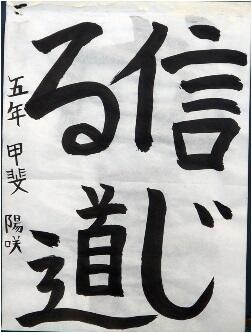 信じ
る道
五年 甲斐 陽咲